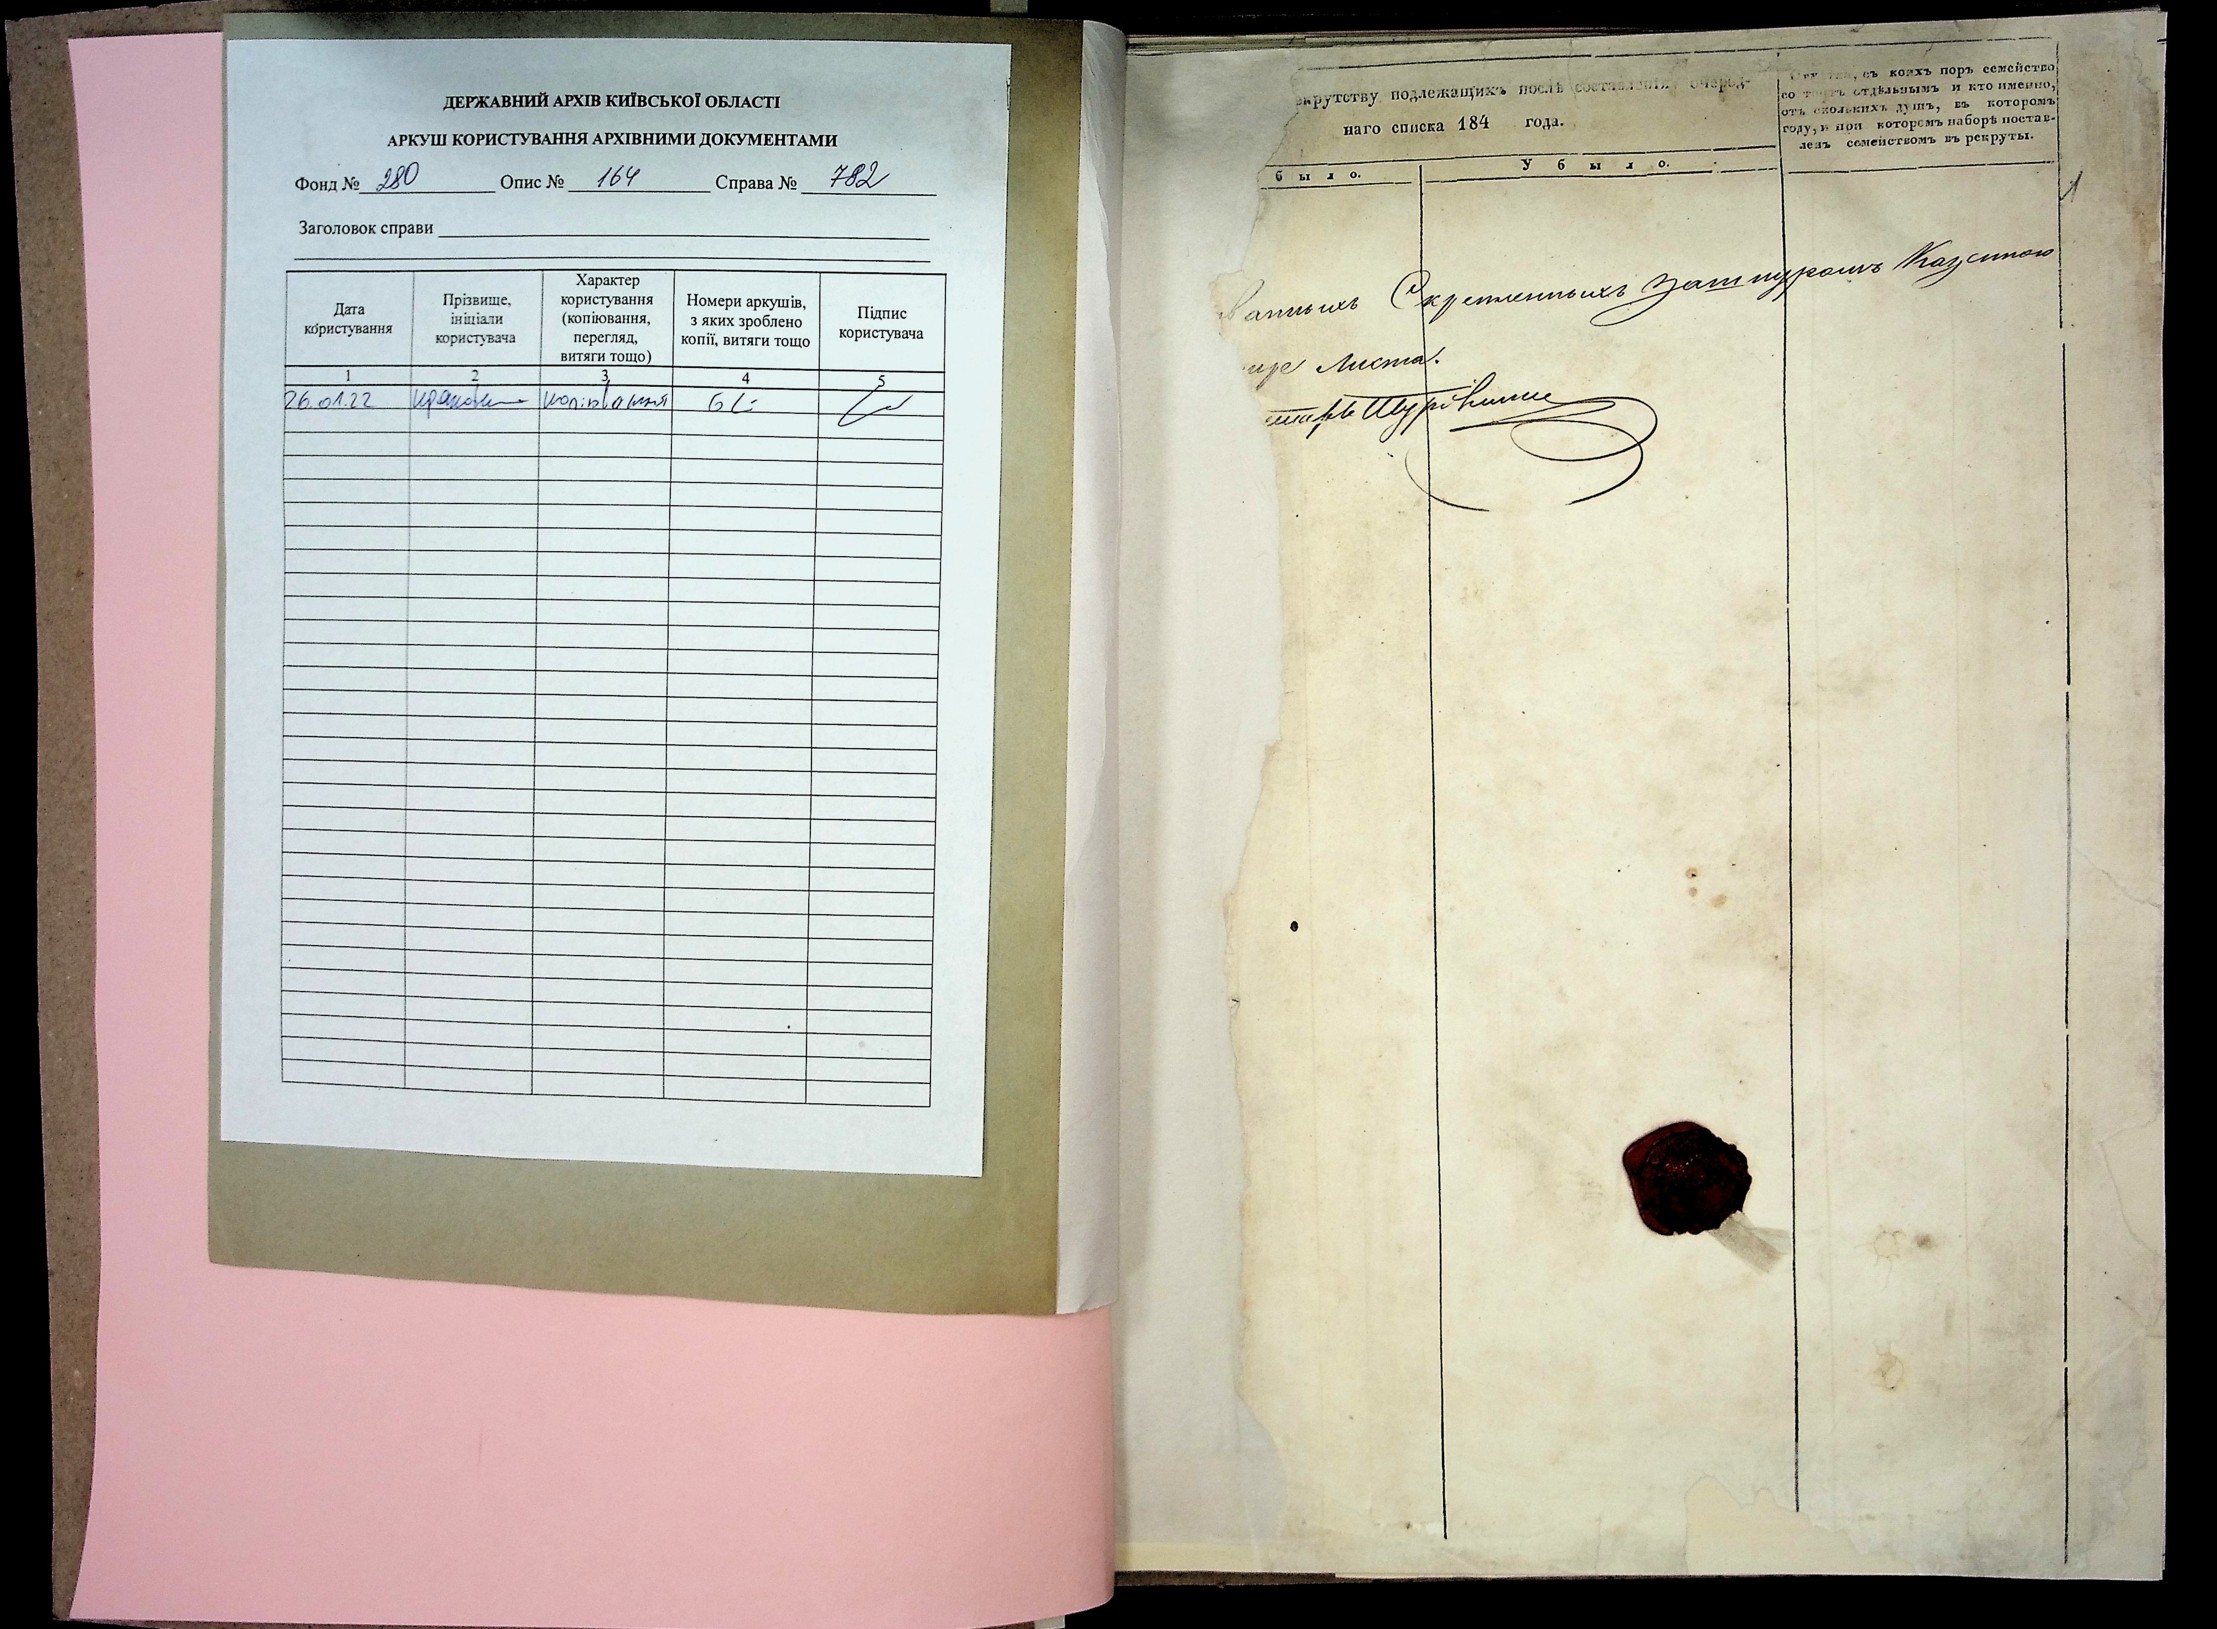 ДЕРЖАВНИЙ АРХІВ КИЇВСЬКОЇ ОБЛАСТІ
АРКУШ КОРИСТУВАННЯ АРХІВНИМИ ДОКУМЕНТАМИ
Фонд № 280 Опис № 164 Справа № 782
Заголовок справи
Дата користування
Прізвище, ініціали користувача
Характер користування (копіювання, перегляд, витяги тощо)
Номери аркушів, з яких зроблено копії, витяги тощо
Підпис користувача
1 2 3 4 5
26.01.22 копіювання
екрутству подлежащихъ послѣ составленія очеред-
наго списка 184 года.
было. Убыло.
съ коихъ поръ семейство
отдѣльнымъ и кто именно,
отъ сколькихъ душъ, въ которомъ
году, и при которомъ наборѣ постав-
ленъ семействомъ въ рекруты.
1
ванныхъ Скрепленныхъ Казенною
Листа.